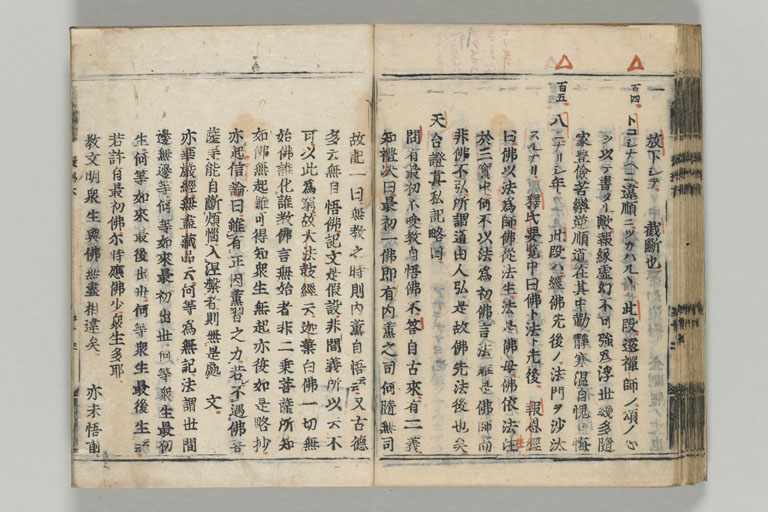 放下シテ 截斷也
百四 トコシナヘニ違順ニツカハルヽ 此段ハ禪師ノ頌ノ心
ヲ以テ書タリ 報縁虚幻不可強為浮世幾多隨
家豊儉苦樂逆順道在其中動靜寒温自愧自悔
百五 八ニナリシ年 此段ハ經佛先後ノ法門ヲ沙汰
スルナリ 釋氏要覽中曰佛ト法ト先後 報恩經
曰佛以法為師佛從法生法是佛母佛依法住
於三寳中何不以法為初佛言法雖是佛師而
非佛不弘所謂道由人弘是故佛先法後也矣
天台證真私記略曰
問有最初不受教自悟佛不答自古來有二義
知禮次曰最初一佛即有内薫之司何隨無司
故記一曰無教之時則内薫自悟云云又古德
多云無自悟佛記文是假設非聞義所以云不
可以此為窮故大法鼓經云迦葉白佛一切無
始佛誰化誰教佛言無始者非二乗菩薩所知
如佛無起難可得知衆生無起亦復如是略抄
亦起信論曰雖有正因薫習之力若不遇佛菩
薩等能自斷煩惱入涅槃者則無是處 文
亦華嚴經無盡藏品云何等為無記法謂世間
邊無邊等何等如來最初出世何等衆生最初
生何等如來最後出世何等衆生最後生云云
若許有最初佛尓時應佛少衆生多耶
教文明衆生與佛無盡相違矣 亦未悟前